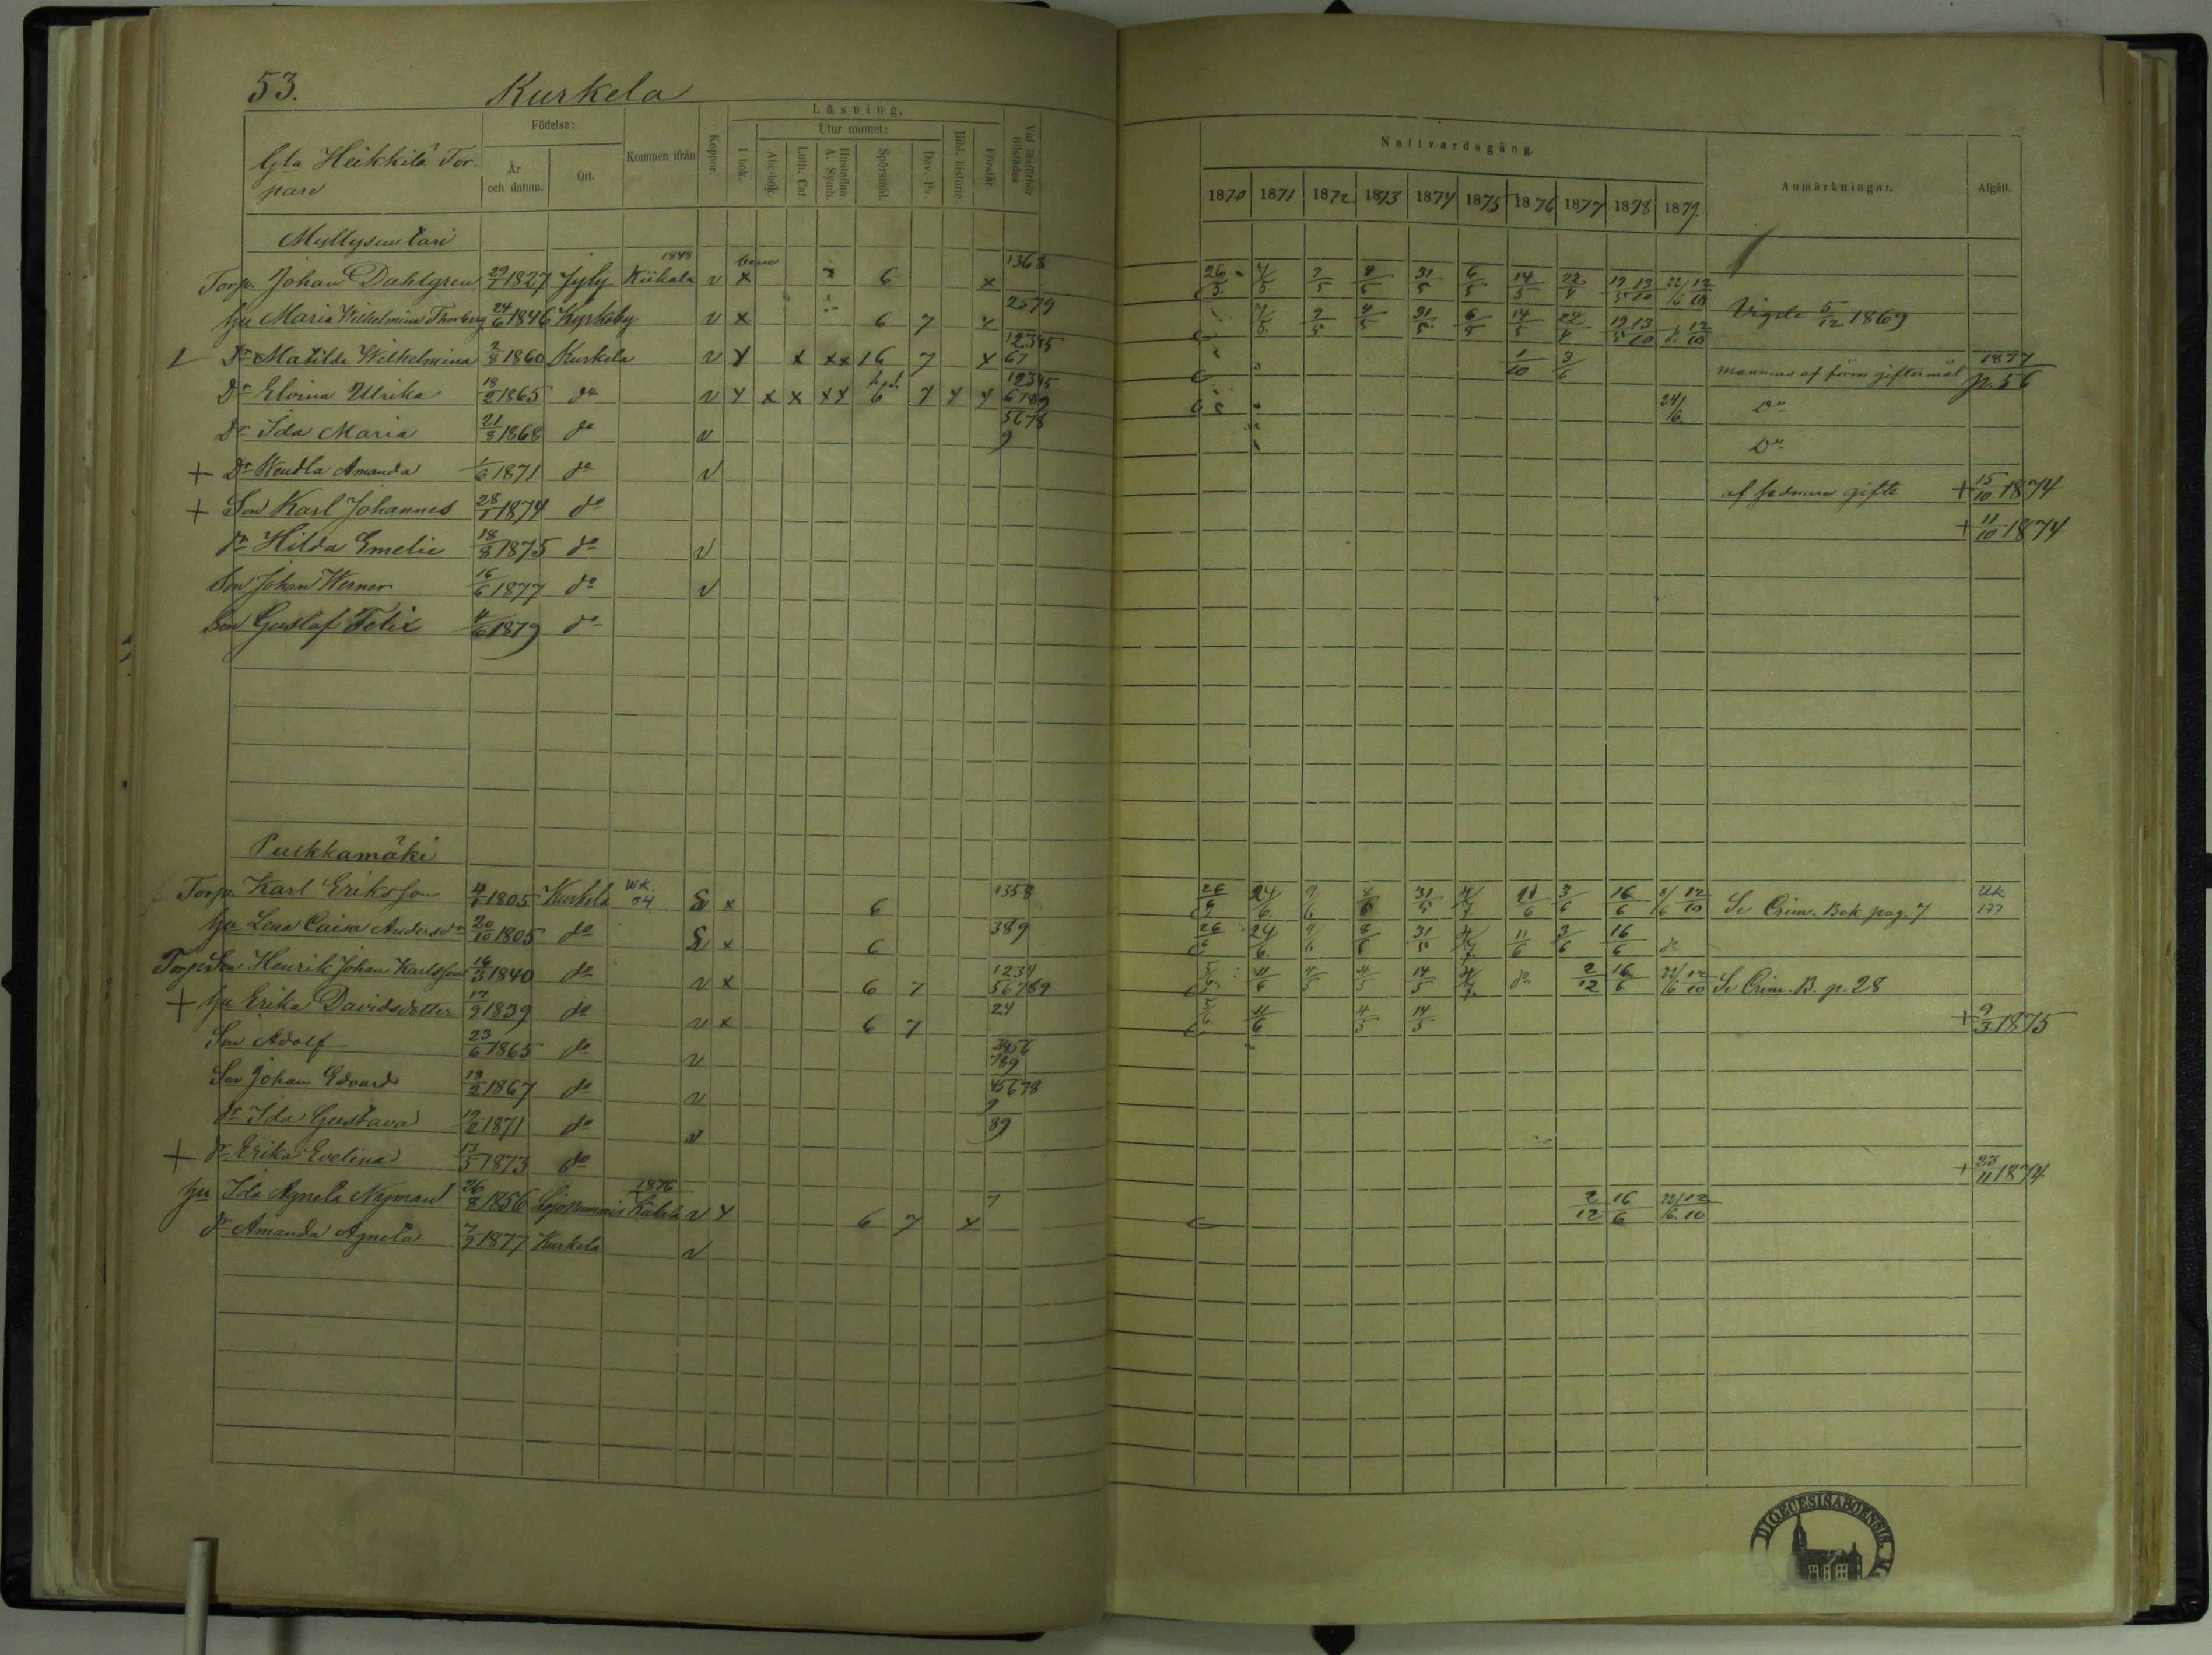 53. Kurkela
Gla Heikkilä Tor-
pare
Födelse:
År och datum.
Ort.
Kommen ifrån
Koppor.
Läsning.
I bok.
Utur minnet:
Abc-bok.
Luth. Cat.
Hustaflan A. Symb.
Spörsmål.
Dav. Ps.
Bibl. historie.
Förstår.
Vid läsförhör tillstädes
Nattvardsgång.
1870 1871 1872 1873 1874 1875 1876 1877 1878 1879
Anmärkningar.
Afgått.
Myllysuutari
Torp. Johan Dahlgren 29/1 1827 Jyly 1848 Kiikala v x 6 x 1368 26/5 7/5 31/5 6/5 14/5 22/4 19/5 13/10 22/6 12/10
hu Maria Wilhelmina Thorberg 24/6 1846 Kyrkoby v x 6 7 2579 7/5 31/5 6/5 14/5 22/4 19/5 13/10 12/10 Vigde 5/12 1869
Dr Matilda Wilhelmina 2/8 1860 Kurkela v x xx 16 7 x 12345 67 1/10 3/6 mannens af förra giftermål 1877 p. 56
Dr Elvina Ulrika 18/2 1865 do v x x xx 6 7 12345 6789 24/6 Do
Dr Ida Maria 21/8 1868 do v 5678 9 Do
+ Dr Wendla Amanda 1/6 1871 do v af sednare gifte + 15/10 1874
+ Son Karl Johannes 28/1 1874 do + 11/10 1874
dr Hilda Emelie 18/8 1875 do v
Son Johan Werner 16/6 1877 do v
Son Gustaf Felix 4/6 1879 do
Puukkamäki
Torp. Karl Eriksson 4/1 1805 Kurkela S x 6 1358 24/6 31/5 4/7 11/6 3/6 16/6 8/6 12/10 Se Crim. Bok pag. 7
hu Lena Caisa Andersdr 20/10 1805 do S x 6 389 24/6 8/6 31/5 4/7 11/6 3/6 16/6 do
Torp. Son Henrik Johan Karlsson 16/3 1840 do v x 6 7 1234 56789 4/5 4/5 14/5 4/7 do 2/12 16/6 22/6 12/10 Se Crim. B. p. 28
+ hu Erika Davidsdotter 17/9 1839 do v x 6 7 24 4/5 14/5 + 9/3 1875
Son Adolf 23/6 1865 do v 3456 789
Son Johan Edvard 19/2 1867 do v 45678 9
dr Ida Gustava 12/2 1871 do v 89
+ dr Erika Evelina 13/5 1873 do + 23/11 1874
hu Ida Agneta Nyman 26/8 1856 Lojo Nummis 1876 Kiikala v 6 7 7 2/12 16/6 22/6 12/10
dr Amanda Agneta 7/9 1877 Kurkela v
DIOECESIS ABOENSIS